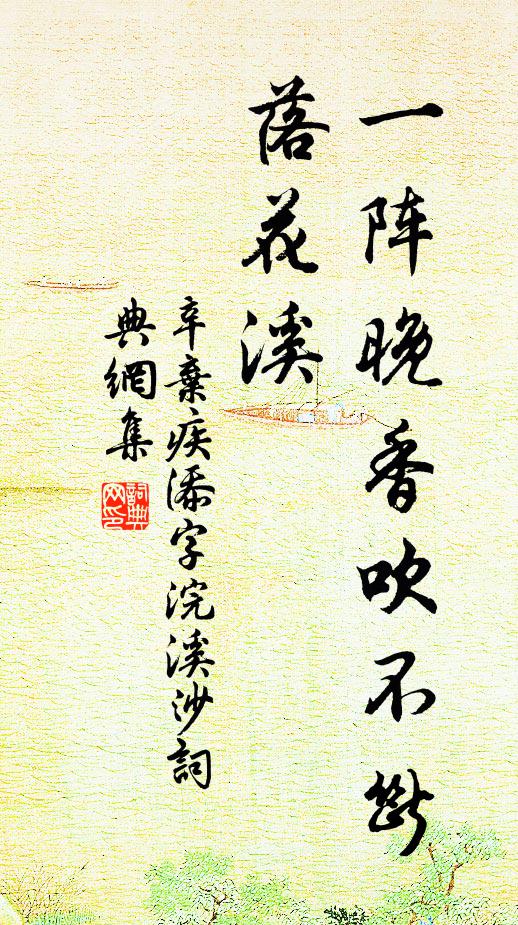 一阵晚香吹不斷
落花溪
辛棄疾添字浣溪沙詞
典網集
詞典网印